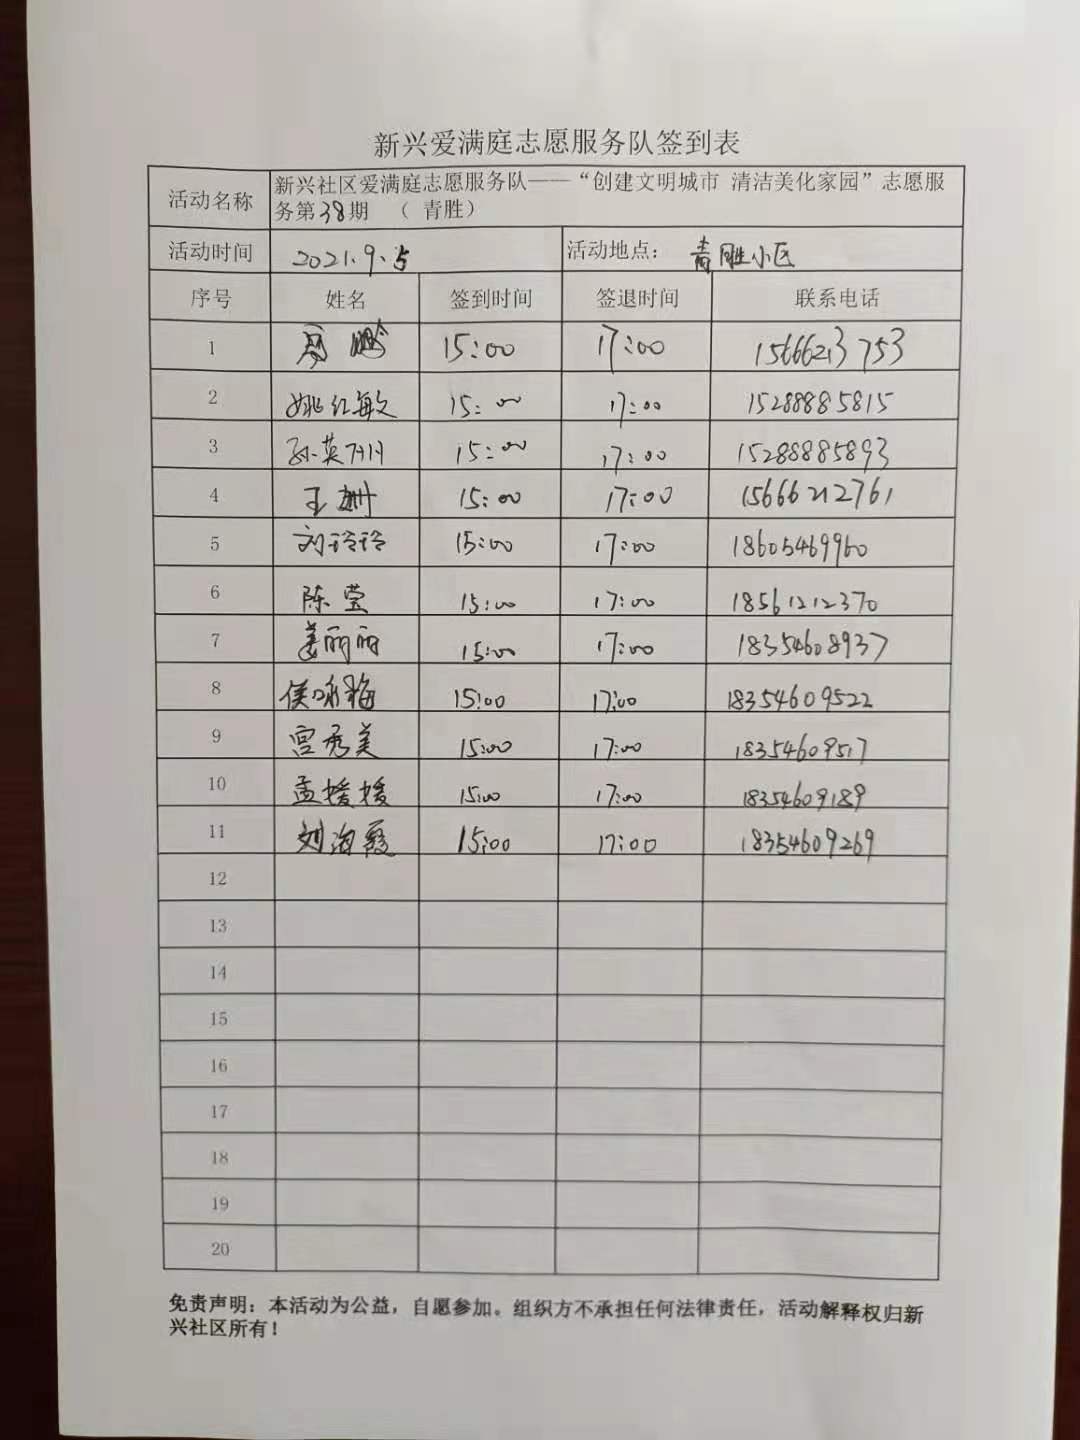 新兴爱满庭志愿服务队签到表
活动名称 新兴社区爱满庭志愿服务队——“创建文明城市 清洁美化家园”志愿服
务第38期 （ 青胜）
活动时间 2021.9.5 活动地点： 青胜小区
序号 姓名 签到时间 签退时间 联系电话
1 鹏 15:00 17:00 15666213753
2 姚红敏 15:00 17:00 15288885815
3 孙英 15:00 17:00 15288885893
4 王珊 15:00 17:00 15666212761
5 刘玲玲 15:00 17:00 18605469960
6 陈莹 15:00 17:00 18561212370
7 姜丽丽 15:00 17:00 18354608937
8 侯咏梅 15:00 17:00 18354609522
9 宫秀美 15:00 17:00 18354609517
10 孟媛媛 15:00 17:00 18354609189
11 刘海霞 15:00 17:00 18354609269
12
13
14
15
16
17
18
19
20
免责声明：本活动为公益，自愿参加。组织方不承担任何法律责任，活动解释权归新
兴社区所有！